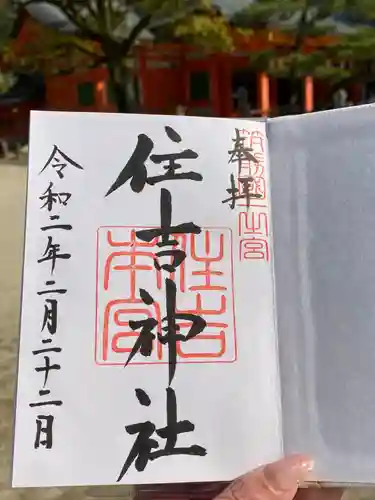 奉拝
筑前國一之宮
住吉神社
住吉本宮
令和二年二月二十二日